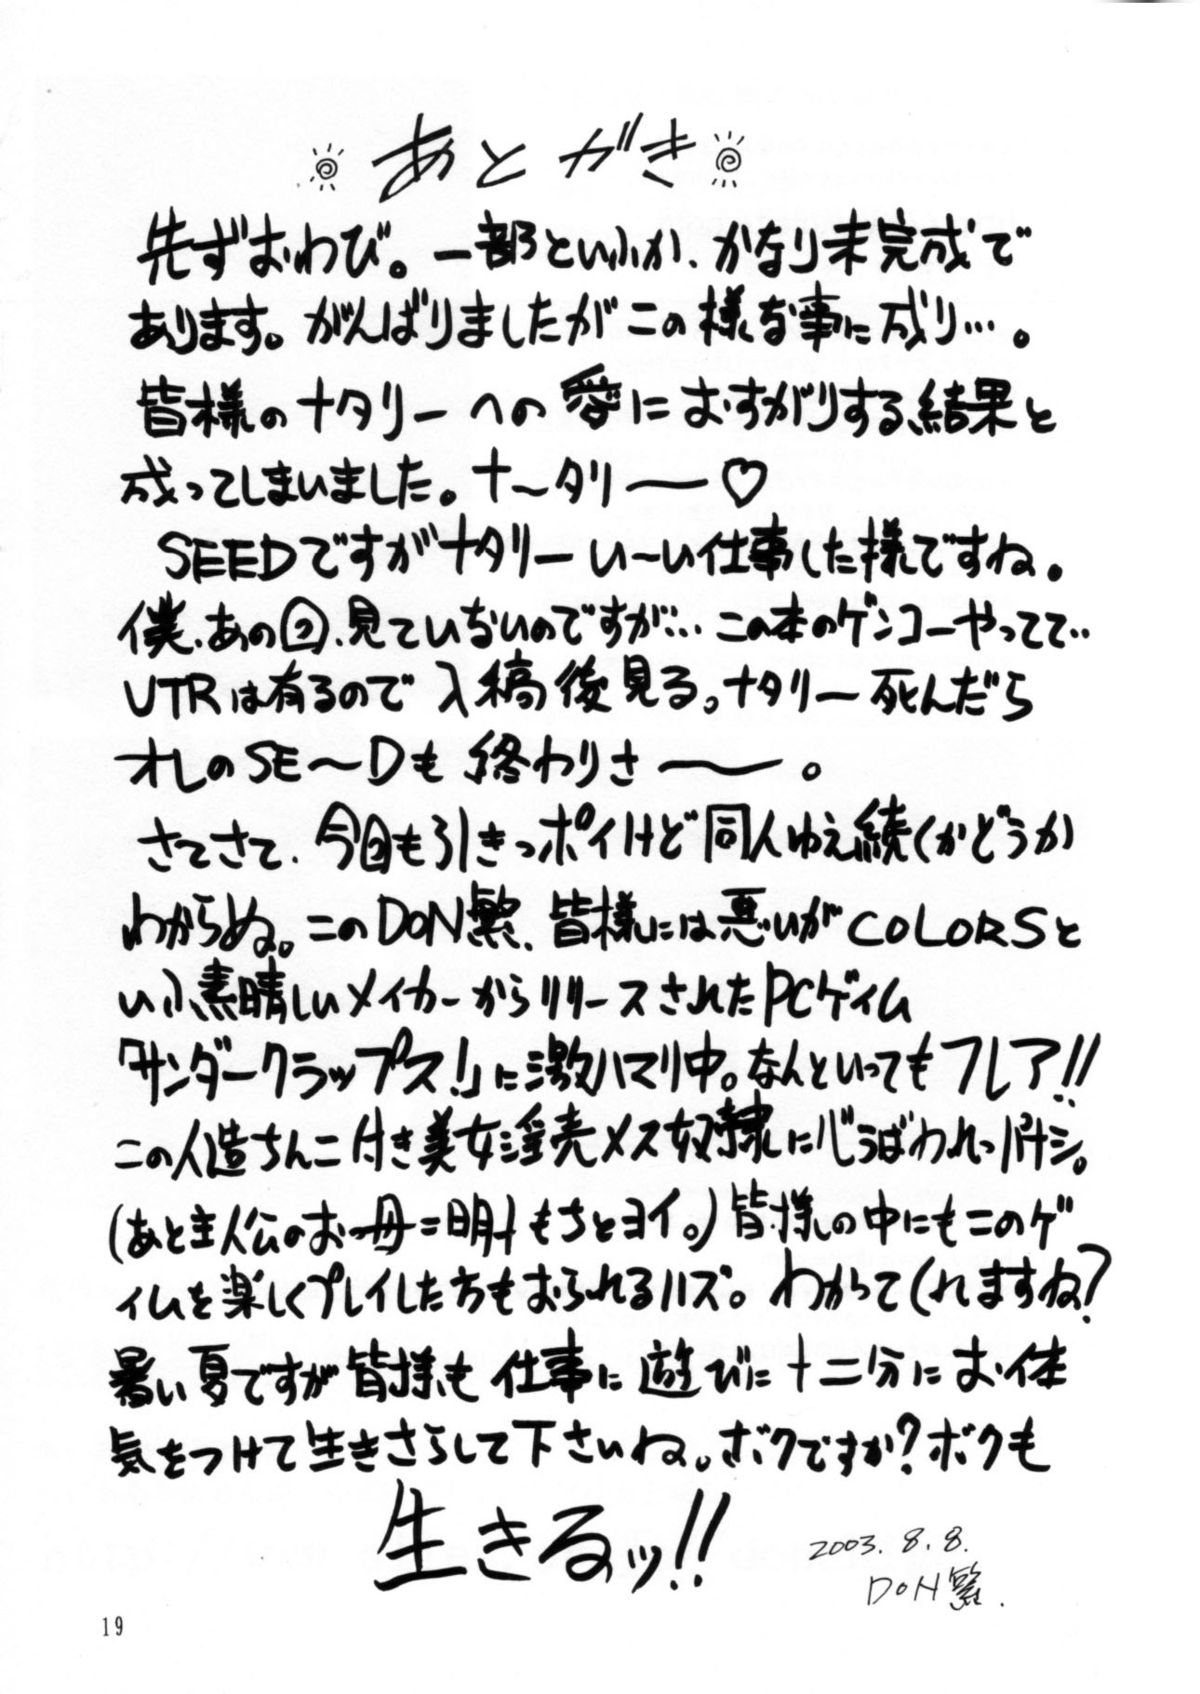 あとがき
先ずおわび。一部といふか、かなり未完成で
あります。がんばりましたがこの様な事に成り…。
皆様のナタリーへの愛におすがりする結果と
成ってしまいました。ナ〜タリー──♡
SEEDですがナタリーい〜い仕事した様ですね。
僕、あの回、見ていないのですが…この本のゲンコーやってて‥
VTRは有るので入稿後見る。ナタリー死んだら
オレのSE〜Dも終わりさ──。
さてさて、今回も引きっポイけど同人ゆえ続くかどうか
わからぬ。このDON繁、皆様には悪いがCOLORSと
いふ素晴しいメイカーからリリースされたPCゲイム
「サンダークラップス!」に激ハマり中。なんといってもフレア!!
この人造ちんこ付き美女淫売メス奴隷に心うばわれっパナシ。
(あと主人公のお母=明もちとヨイ。)皆様の中にもこのゲ
イムを楽しくプレイした方もおられるハズ。わかってくれますね?
暑い夏ですが皆様も仕事に遊びに十二分にお体
気をつけて生きさらして下さいね。ボクですか?ボクも
生きるッ!!
2003.8.8.
DON繁.
19